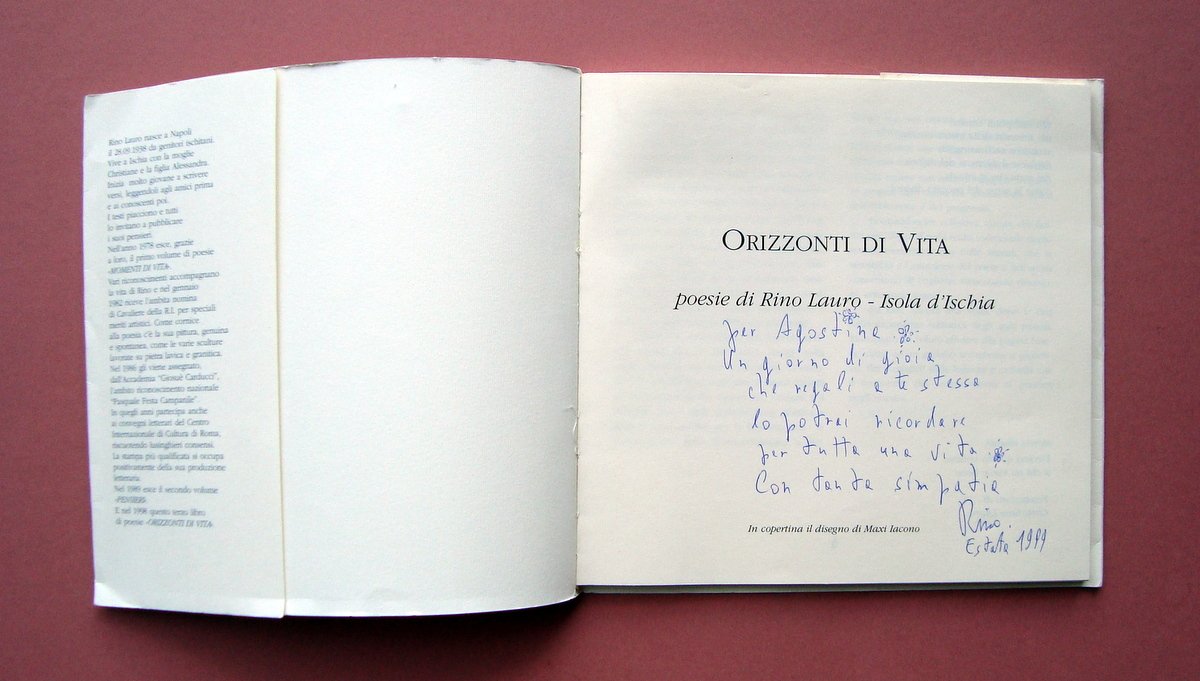 Rino Lauro nasce a Napoli
il 28.09.1938 da genitori ischitani.
Vive a Ischia con la moglie
Christiane e la figlia Alessandra.
Inizia molto giovane a scrivere
versi, leggendoli agli amici prima
e ai conoscenti poi.
I testi piacciono e tutti
lo invitano a pubblicare
i suoi pensieri.
Nell'anno 1978 esce, grazie
a loro, il primo volume di poesie
«MOMENTI DI VITA».
Vari riconoscimenti accompagnano
la vita di Rino e nel gennaio
1982 riceve l'ambita nomina
di Cavaliere della R.I. per speciali
meriti artistici. Come cornice
alla poesia c'è la sua pittura, genuina
e spontanea, come le varie sculture
lavorate su pietra lavica e granitica.
Nel 1986 gli viene assegnato,
dall'Accademia "Giosuè Carducci",
l'ambito riconoscimento nazionale
"Pasquale Festa Campanile".
In quegli anni partecipa anche
ai convegni letterari del Centro
Internazionale di Cultura di Roma,
riscuotendo lusinghieri consensi.
La stampa più qualificata si occupa
positivamente della sua produzione
letteraria.
Nel 1989 esce il secondo volume
«PENSIERI».
E nel 1998 questo terzo libro
di poesie «ORIZZONTI DI VITA».
ORIZZONTI DI VITA
poesie di Rino Lauro - Isola d'Ischia
per Agostina
Un giorno di gioia
che regali a te stessa
lo potrai ricordare
per tutta una vita
Con tanta simpatia
Rino.
Estate 1999
In copertina il disegno di Maxi Iacono